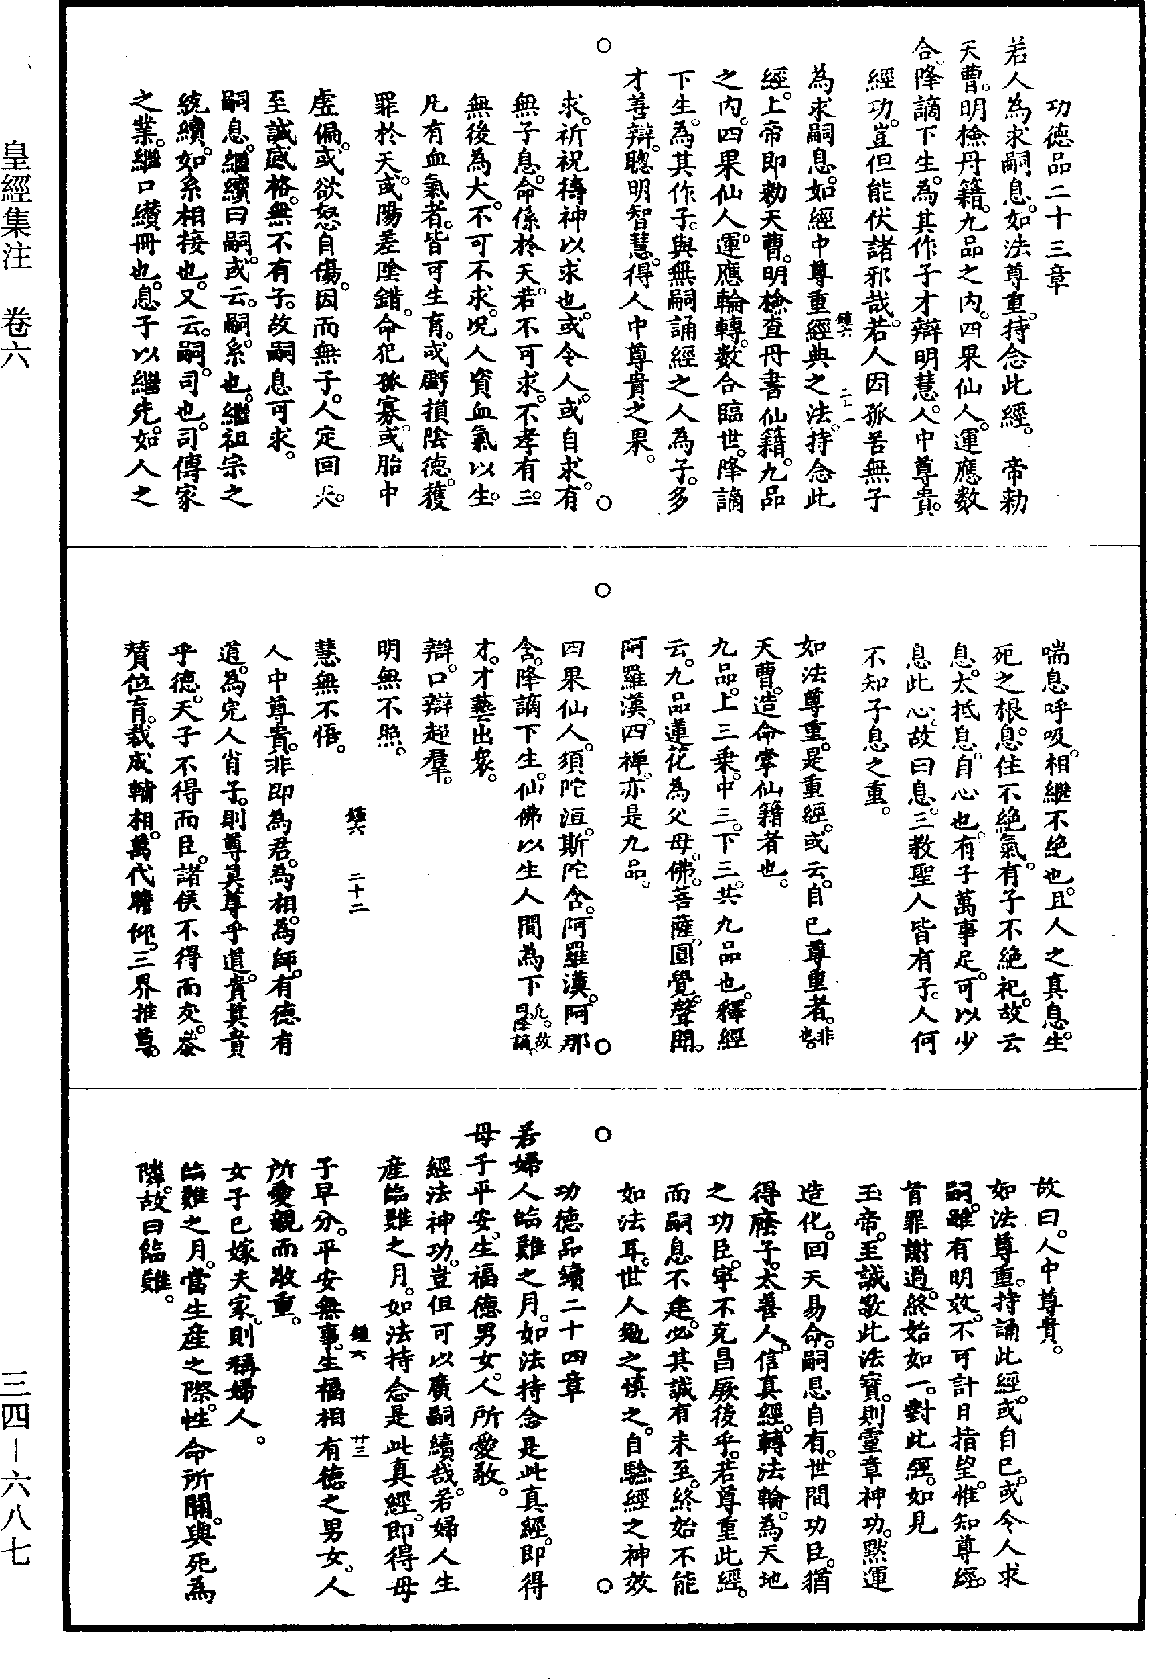 皇經集注　卷六
三四—六八七
功德品二十三章
若人為求嗣息。如法尊重。持念此經。　帝勅
天曹。明檢丹籍。九品之內。四果仙人。運應數
合。降謫下生。為其作子。才辯明慧。人中尊貴。
經功。豈但能伏諸邪哉。若人因孤苦無子
為求嗣息。如經中尊重經典之法。持念此
經。上帝即勅天曹。明檢查丹書仙籍。九品
之內。四果仙人。運應輪轉。數合臨世。降謫
下生。為其作子。與無嗣誦經之人為子。多
才善辯。聰明智慧。得人中尊貴之果。
求。祈祝禱神以求也。或令人。或自求。有
無子息。命係於天。若不可求。不孝有三。
無後為大。不可不求。況人資血氣以生。
凡有血氣者。皆可生育。或虧損陰德。獲
罪於天。或陽差陰錯。命犯孤寡。或胎中
虛偏。或欲怒自傷。因而無子。人定回天。
至誠感格。無不有子。故嗣息可求。
嗣息。繼續曰嗣。或云。嗣。系也。繼祖宗之
統續。如系相接也。又云。嗣。司也。司傳家
之業。繼口纘冊也。息子以繼先。如人之
喘息呼吸。相繼不絕也。且人之真息。生
死之根。息住不絕氣。有子不絕祀。故云
息。太抵息。自心也。有子萬事足。可以少
息此心。故曰息。三教聖人皆有子。人何
不知子息之重。
如法尊重。是重經。或云。自己尊重者。非也。
天曹。造命掌仙籍者也。
九品。上三乘。中三。下三。共九品也。釋經
云。九品蓮花為父母。佛。菩薩。圓覺。聲聞。
阿羅漢。四禪。亦是九品。
四果仙人。須陀洹。斯陀含。阿羅漢。阿那
含。降謫下生。仙佛以生人間為下九。故曰降謫。
才。才藝出眾。
辯。口辯超羣。
明無不照。
慧無不悟。
人中尊貴。非即為君。為相。為師。有德有
道。為完人肖子。則尊莫尊乎道。貴莫貴
乎德。天子不得而臣。諸侯不得而友。參
贊位育。裁成輔相。萬代瞻仰。三界推尊。
故曰。人中尊貴。
如法尊重。持誦此經。或自己。或令人求
嗣。雖有明效。不可計日指望。惟知尊經。
首罪謝過。終始如一。對此經。如見
玉帝。至誠敬此法寶。則靈章神功。默運
造化。回天易命。嗣息自有。世間功臣。猶
得廕子。太善人。信真經。轉法輪。為天地
之功臣。寧不克昌厥後乎。若尊重此經。
而嗣息不建。必其誠有未至。終始不能
如法耳。世人勉之慎之。自驗經之神效
功德品續二十四章
若婦人臨難之月。如法持念是此真經。即得
母子平安。生福德男女。人所愛敬。
經法神功。豈但可以廣嗣續哉。若婦人生
產臨難之月。如法持念是此真經。即得母
子早分。平安無事。生福相有德之男女。人
所愛親而敬重。
女子已嫁夫家。則稱婦人。
臨難之月。當生產之際。性命所關。與死為
隣。故曰臨難。